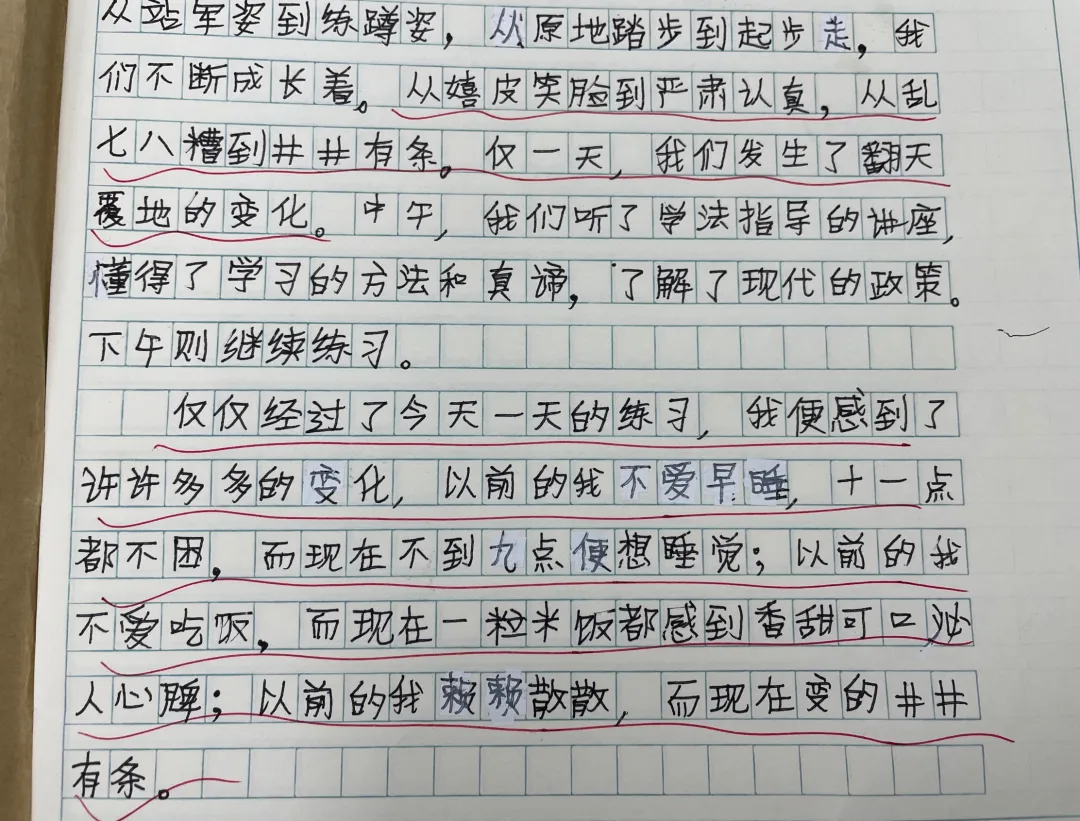 从站军姿到练蹲姿，从原地踏步到起步走，我
们不断成长着。从嬉皮笑脸到严肃认真，从乱
七八糟到井井有条。仅一天，我们发生了翻天
覆地的变化。中午，我们听了学法指导的讲座，
懂得了学习的方法和真谛，了解了现代的政策。
下午则继续练习。
仅仅经过了今天一天的练习，我便感到了
许许多多的变化，以前的我不爱早睡，十一点
都不困，而现在不到九点便想睡觉；以前的我
不爱吃饭，而现在一粒米饭都感到香甜可口沁
人心脾；以前的我赖赖散散，而现在变的井井
有条。